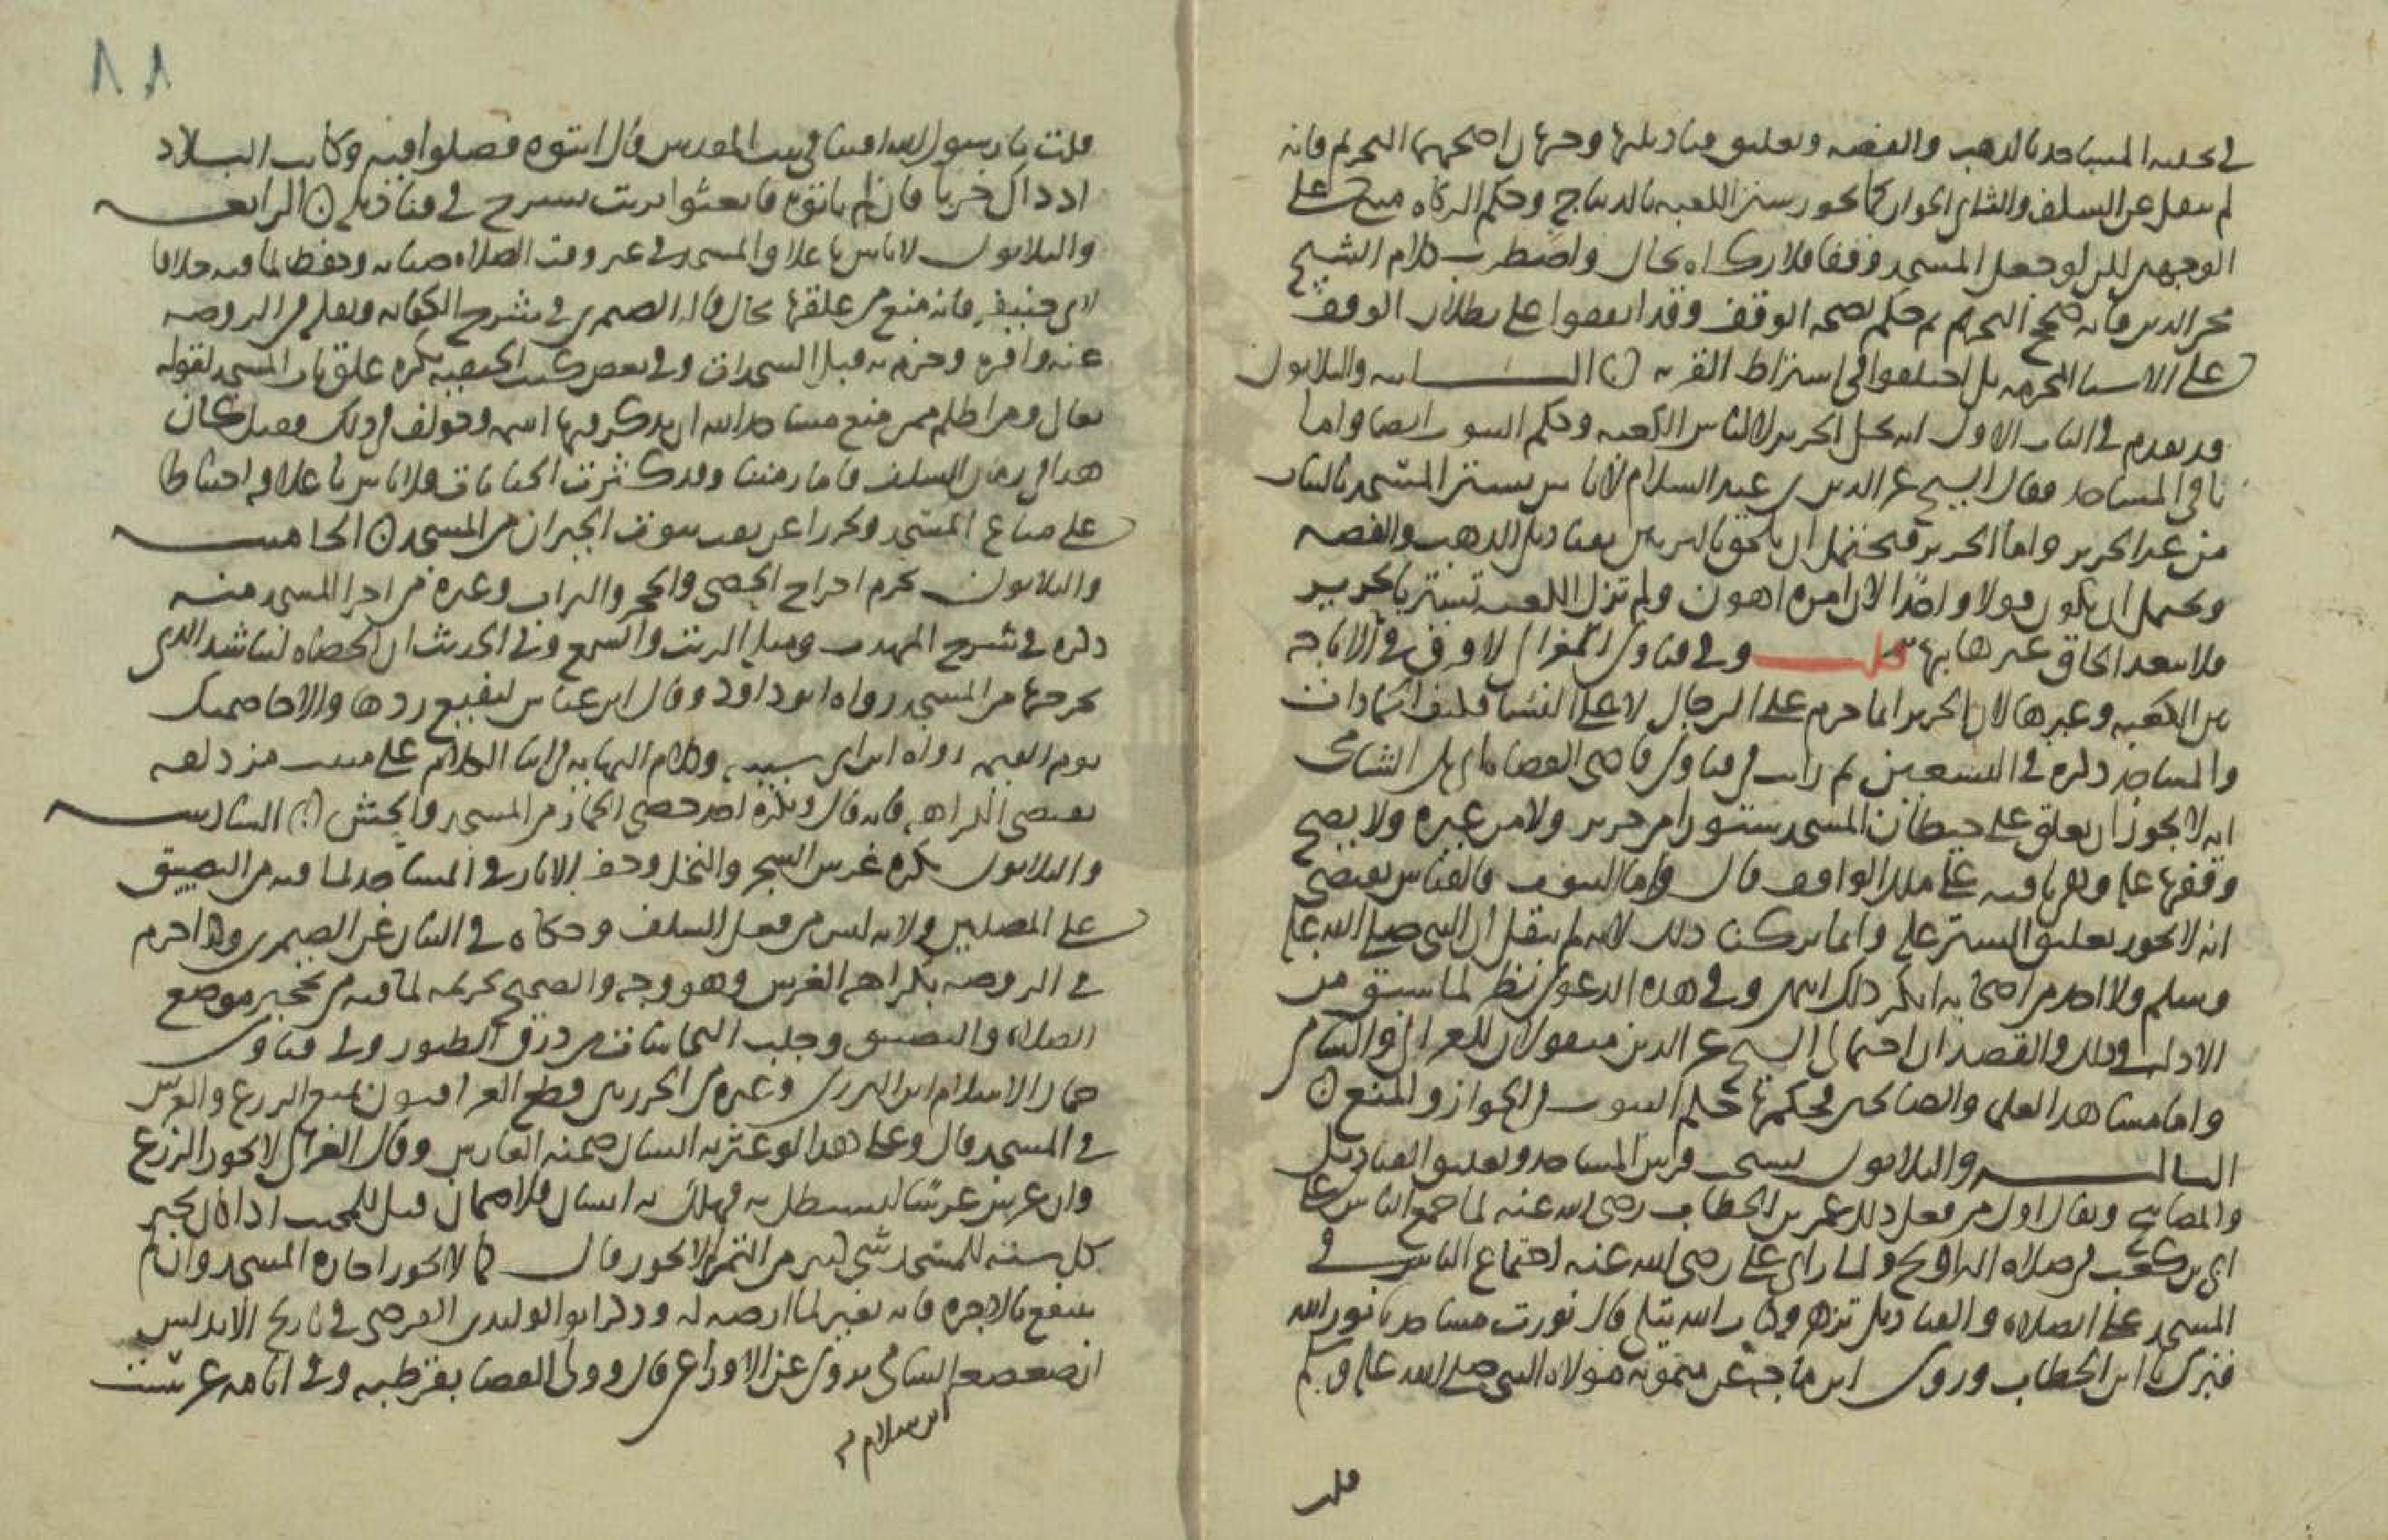 في تحلية المساجد بالذهب والفضة وتعليق قناديلها وجهان اصحهما التحريم فانه
لم ينقل عن السلف والثاني الجواز كما يجوز ستر الكعبة بالديباج وحكم الزكاة مبني على
الوجهين لكن لو جعل المسجد وقفا فلا زكاة بحال واضطرب كلام الشيخ
محي الدين فانه صحح التحريم ثم حكم بصحة الوقف وقد اتفقوا على بطلان الوقف
على الاشيا المحرمة بل اختلفوا في اشتراط القربة الثانيه والثلاثون
قد تقدم في الباب الاول انه يحل الحرير لالباس الكعبة وحكم البيوت ايضا واما
باقي المساجد فقال الشيخ عز الدين بن عبد السلام لا باس بستر المسجد بالثياب
من غير الحرير واما الحرير فيحتمل ان يلحق بالتزيين بقناديل الذهب والفضة
ويحتمل ان يكون قولا واحدا لان امره اهون ولم تزل الكعبة تستر بالحرير
فلا يبعد الحاق غيرها بها قلت وفي فتاوى الغزالي لا فرق في الاباحة
بين الكعبة وغيرها لان الحرير انما حرم على الرجال لا على النسا فكيف الجمادات
والمساجد ذكره في التسعين ثم رايت في فتاوى قاضي القضاة ابي بكر الشامي
انه لا يجوز ان يعلق على حيطان المسجد ستورا من حرير ولا من غيره ولا يصح
وقفها عليه وهي باقية على ملك الواقف قال واما البيوت فالقياس يقتضي
انه لا يجوز تعليق الستر عليه وانما تركنا ذلك لانه لم ينقل ان النبي صلى الله عليه
وسلم ولا احد من اصحابه انكر ذلك انتهى وفي هذه الدعوى نظر لما سبق من
الادلة في ذلك والقصد ان احتمالي الشيخ عز الدين منقولان للغزالي والشامي
واما مشاهد العلما والصالحين فحكمها حكم البيوت في الجواز والمنع
الثالثه والثلاثون يستحب فرش المساجد وتعليق القناديل
والمصابيح ويقال اول من فعل ذلك عمر بن الخطاب رضي الله عنه لما جمع الناس على
ابي بن كعب في صلاة التراويح ولما راى علي رضي الله عنه اجتماع الناس في
المسجد على الصلاة والقناديل تزهر وكتاب الله يتلى قال نورت مساجدنا نور الله
قبرك يا ابن الخطاب وروى ابن ماجه عن ميمونة مولاة النبي صلى الله عليه وسلم
قلت
٨١
قلت يا رسول الله افتنا في بيت المقدس قال ائتوه فصلوا فيه وكانت البلاد
اذ ذاك خربا فان لم تاتوه فابعثوا بزيت يسرج في قناديله الرابعه
والثلاثون لا باس باغلاق المسجد في غير وقت الصلاة صيانة وحفظا لما فيه خلافا
لابي حنيفة فانه منع من غلقها بحال قاله الصيمري في شرح الكفاية ونقله في الروضة
عنه واقره وجزم به قبل السجدات وفي بعض كتب الحنفية يكره غلق باب المسجد لقوله
تعالى ومن اظلم ممن منع مساجد الله ان يذكر فيها اسمه وخولف في ذلك فقيل كان
هذا في زمان السلف فاما زمننا وقد كثرت الجنايات فلا باس باغلاقه احتياطا
على متاع المسجد وتحرزا عن نقب بيوت الجيران من المسجد الخامسه
والثلاثون يحرم اخراج الحصى والحجر والتراب وغيره من اجزا المسجد منه
ذكره في شرح المهذب ومثله الزيت والشمع وفي الحديث ان الحصاة لتناشد الذي
يخرجها من المسجد رواه ابو داود وقال ابن عباس ليفبع ردها والا خاصمتك
يوم القيمة رواه ابن ابي شيبة وكلام النهاية في اثنا الكلام على مبيت مزدلفة
يقتضي الكراهه فانه قال ويكره اخذ حصى الجمار من المسجد والحش السادسه
والثلاثون يكره غرس الشجر والنخل وحفر الابار في المساجد لما فيه من التضييق
على المصلين ولانه ليس من فعل السلف وحكاه في البيان عن الصيمري وكذا جزم
في الروضة بكراهة الغرس وهو وجه والصحيح تحريمه لما فيه من تحجير موضع
الصلاة والتضييق وجلب النجاسات من ذرق الطيور وفي فتاوى
جمال الاسلام ابن البزري وغيره من الجزريين قطع العراقيون بمنع الزرع والغرس
في المسجد قال وعلى هذا لو عثر به انسان ضمنه الغارس وقال الغزالي لا يجوز الزرع
وان غرس غرسا ليستظل به فهلك به انسان فلا ضمان قيل للمجيب اذا كان يجبر
كل سنة للمسجد شي كثير من الثمرة لا يجوز قال كما لا يجوز اجارة المسجد وان
ينتفع بالاجرة فانه تغيير لما ارصد له وذكر ابو الوليد بن الفرضي في تاريخ الاندلس
ان صعصعة الشامي يروي عن الاوزاعي قال وولي القضا بقرطبة وفي ايامه غرست
ابن سلام